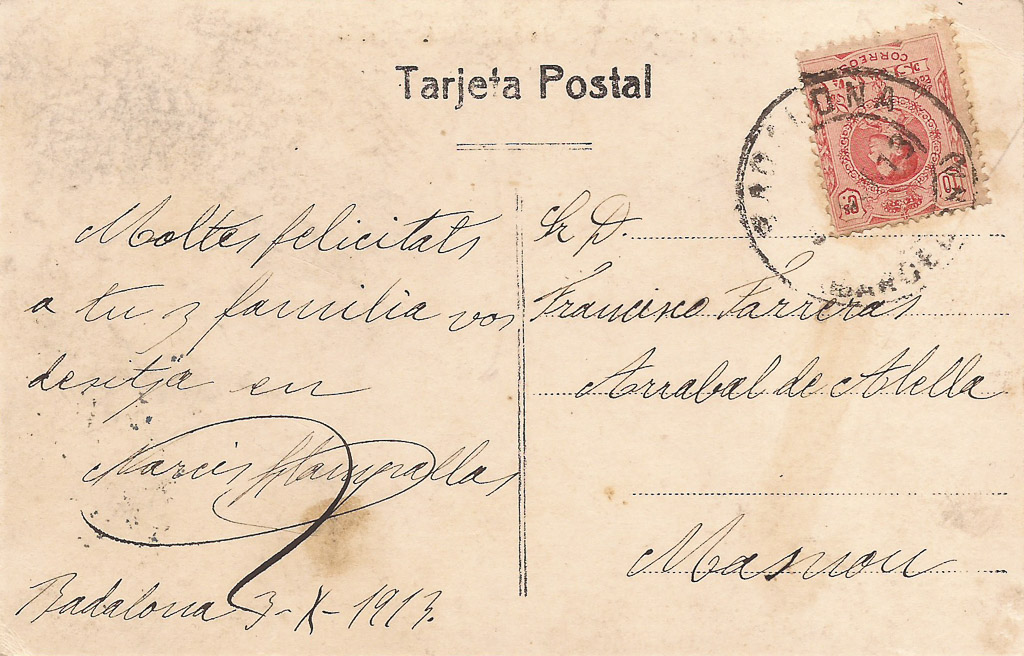 Tarjeta Postal
CORREOS
BADALONA
Moltes felicitats
a tu y familia vos
desitja en
Narcís
Badalona 3-X-1913.
Sr D.
Francisco Farreras
Arrabal de Alella
Masnou